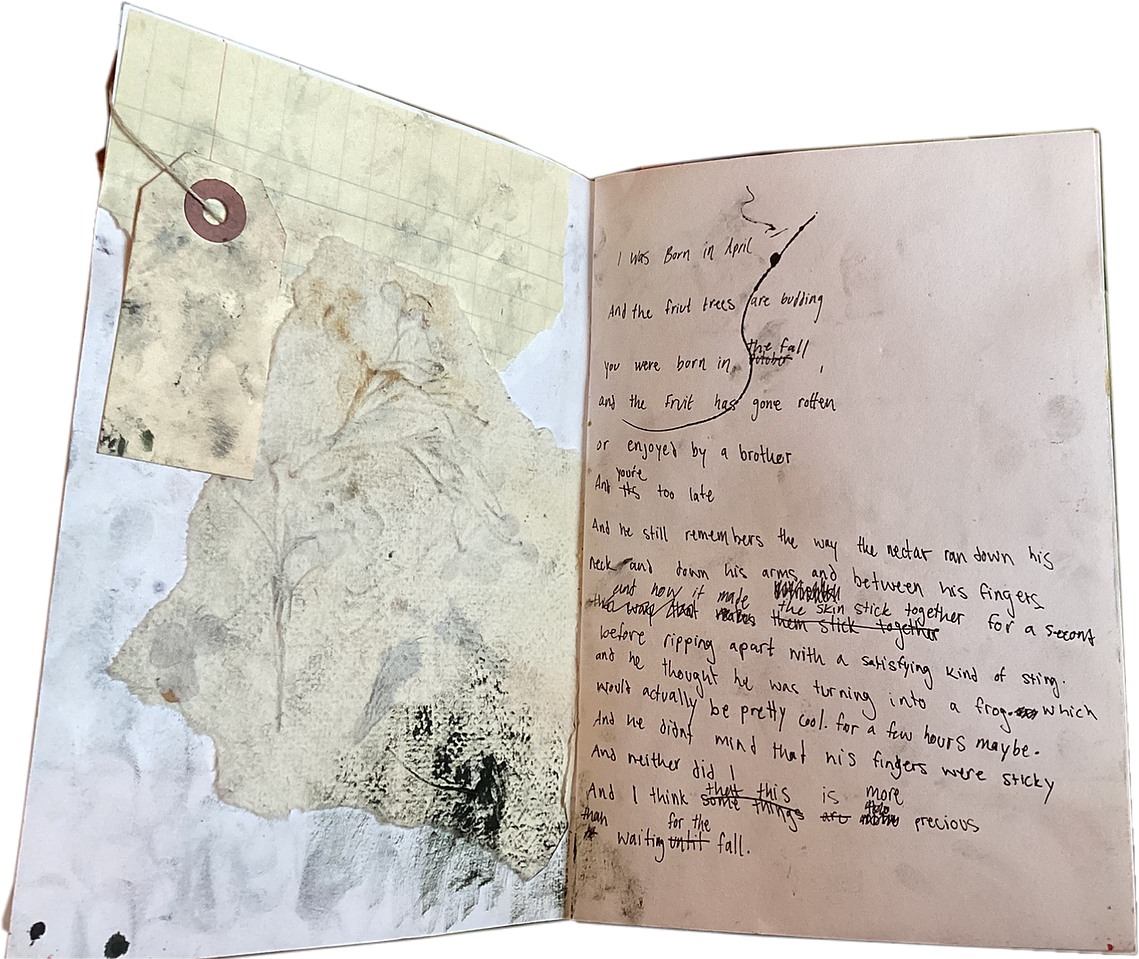 I was Born in April
And the friut trees are budding
you were born in the fall october,
and the fruit has gone rotten
or enjoyed by a brother
And you're its too late
And he still remembers the way the nectar ran down his
neck and down his arms and between his fingers
and how it made the skin stick together for a second
the way that makes them stick together
before ripping apart with a satisfying kind of sting.
and he thought he was turning into a frog which
would actually be pretty cool. for a few hours maybe.
And he didnt mind that his fingers were sticky
And neither did I
And I think that this some things is are more precious
than waiting for the until fall.